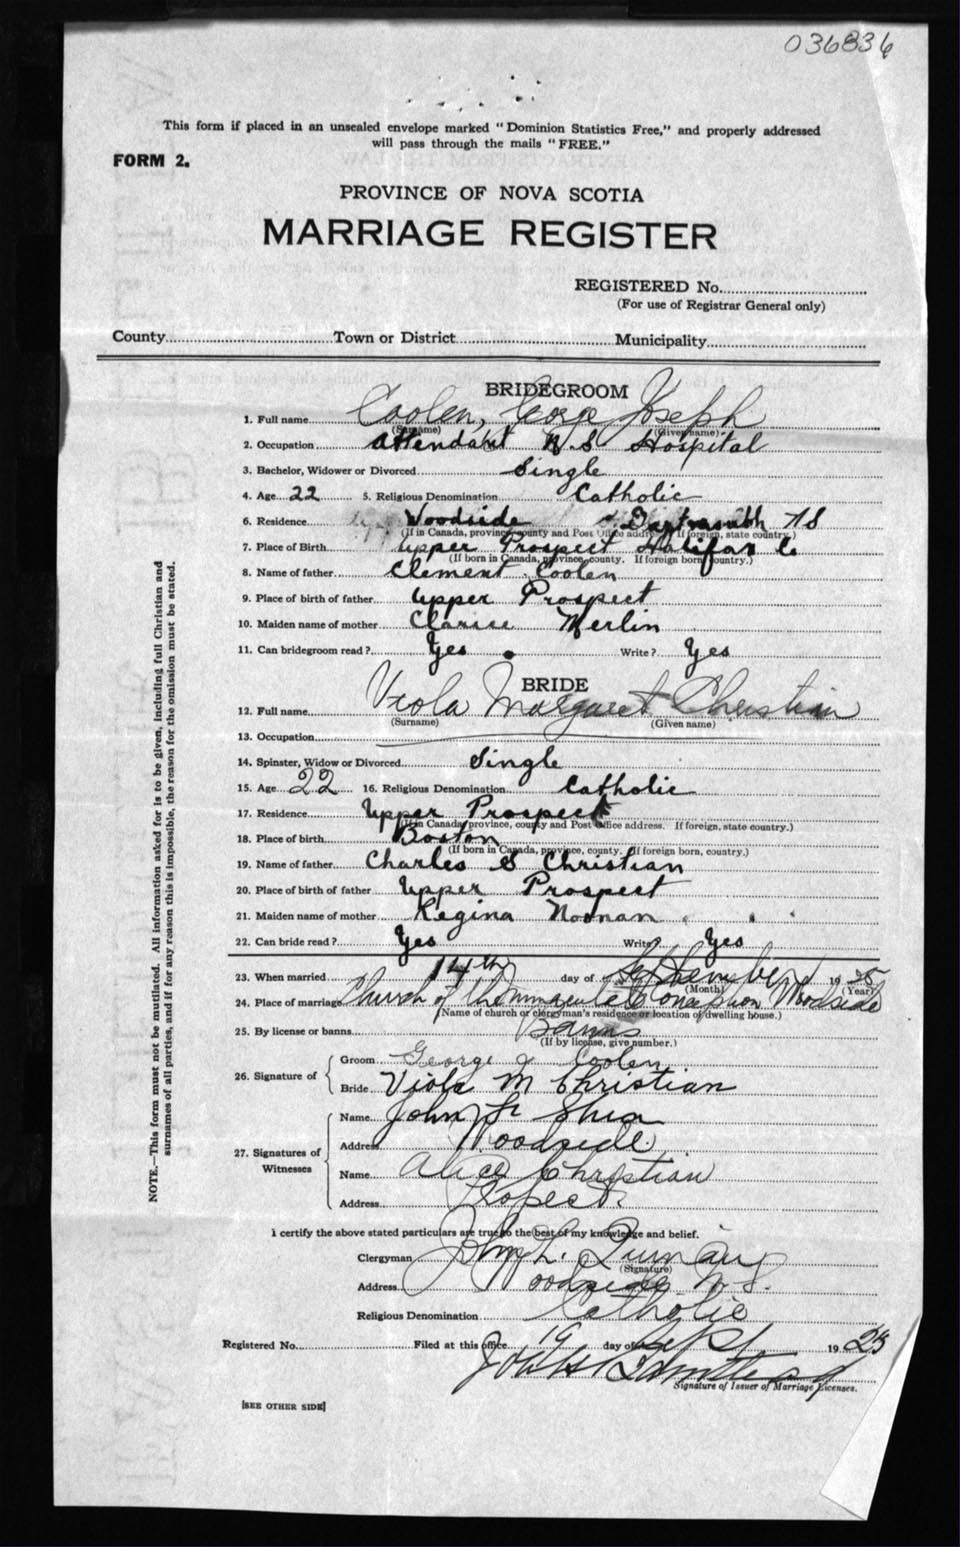 036836
This form if placed in an unsealed envelope marked "Dominion Statistics Free," and properly addressed
will pass through the mails "FREE."
FORM 2.
PROVINCE OF NOVA SCOTIA
MARRIAGE REGISTER
REGISTERED No.
(For use of Registrar General only)
County Town or District Municipality
BRIDEGROOM
1. Full name Coolen, George Joseph
(Surname) (Given name)
2. Occupation Attendant N.S Hospital
3. Bachelor, Widower or Divorced Single
4. Age 22 5. Religious Denomination Catholic
6. Residence Woodside Dartmouth NS
(If in Canada, province, county and Post Office address. If foreign, state country.)
7. Place of Birth Upper Prospect Halifax Co
(If born in Canada, province, county. If foreign born, country.)
8. Name of father Clement Coolen
9. Place of birth of father Upper Prospect
10. Maiden name of mother Clarice Merlin
11. Can bridegroom read? Yes Write? Yes
BRIDE
12. Full name Viola Margaret Christian
(Surname) (Given name)
13. Occupation
14. Spinster, Widow or Divorced Single
15. Age 22 16. Religious Denomination Catholic
17. Residence Upper Prospect
(If in Canada, province, county and Post Office address. If foreign, state country.)
18. Place of birth Boston
(If born in Canada, province, county. If foreign born, country.)
19. Name of father Charles S Christian
20. Place of birth of father Upper Prospect
21. Maiden name of mother Regina Noonan
22. Can bride read? Yes Write? Yes
23. When married 14th day of September 1925
(Month) (Year)
24. Place of marriage Church of the Immaculate Conception Woodside
(Name of church or clergyman's residence or location of dwelling house.)
25. By license or banns Banns
(If by license, give number.)
26. Signature of
Groom George J Coolen
Bride Viola M Christian
27. Signatures of Witnesses
Name John Shea
Address Woodside
Name Alice Christian
Address Prospect.
I certify the above stated particulars are true to the best of my knowledge and belief.
Clergyman John L. Quinan
(Signature)
Address Woodside N.S.
Religious Denomination Catholic
Registered No. Filed at this office 19 day of Sept 1925
Signature of Issuer of Marriage Licenses.
[SEE OTHER SIDE]
NOTE.—This form must not be mutilated. All information asked for is to be given, including full Christian and
surnames of all parties, and if for any reason this is impossible, the reason for the omission must be stated.